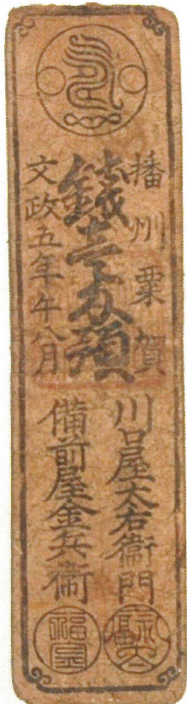 播州粟賀
錢壱匁預
文政五年午八月
川口屋太右衛門
備前屋金兵衛